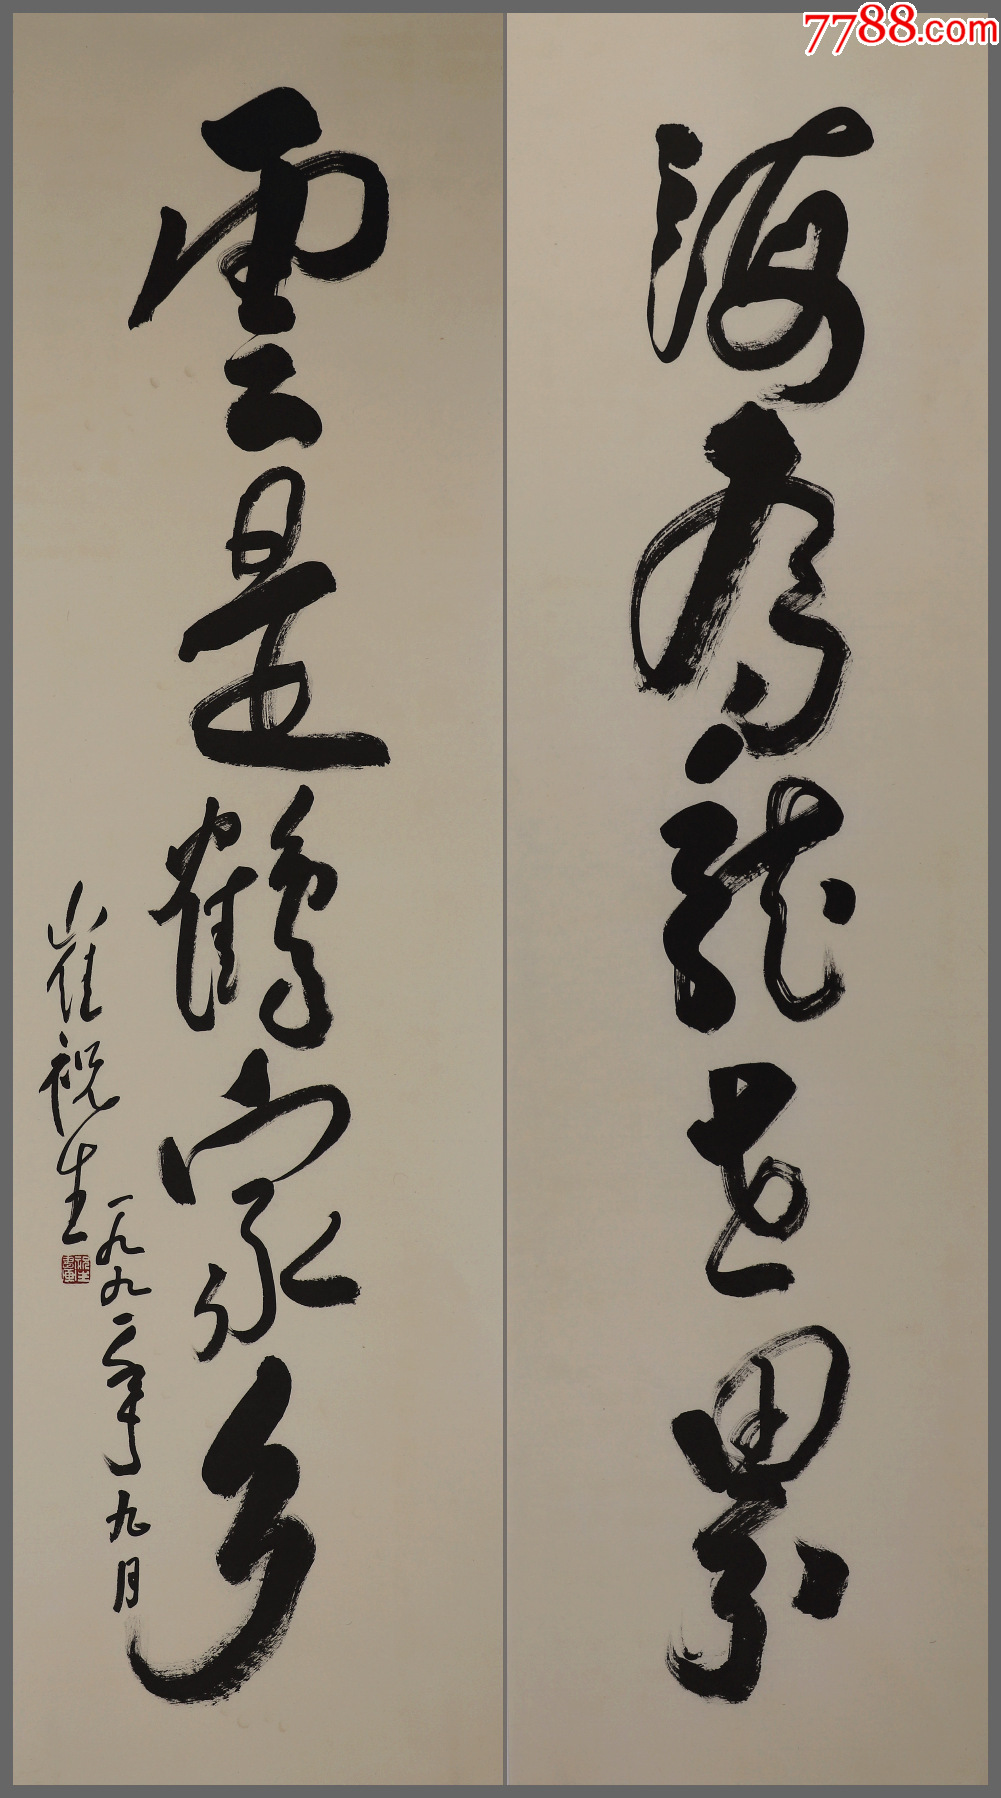 7788.com
海为龙世界
雲是鶴家乡
崔祝生
一九九二年九月